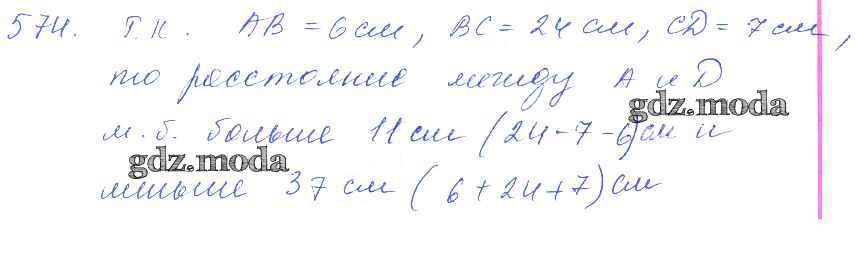 574. Т.К. AB = 6 см, BC = 24 см, CD = 7 см,
то расстояние между A и D
gdz.moda
м.б. больше 11 см (24-7-6) см и
gdz.moda
меньше 37 см (6+24+7) см